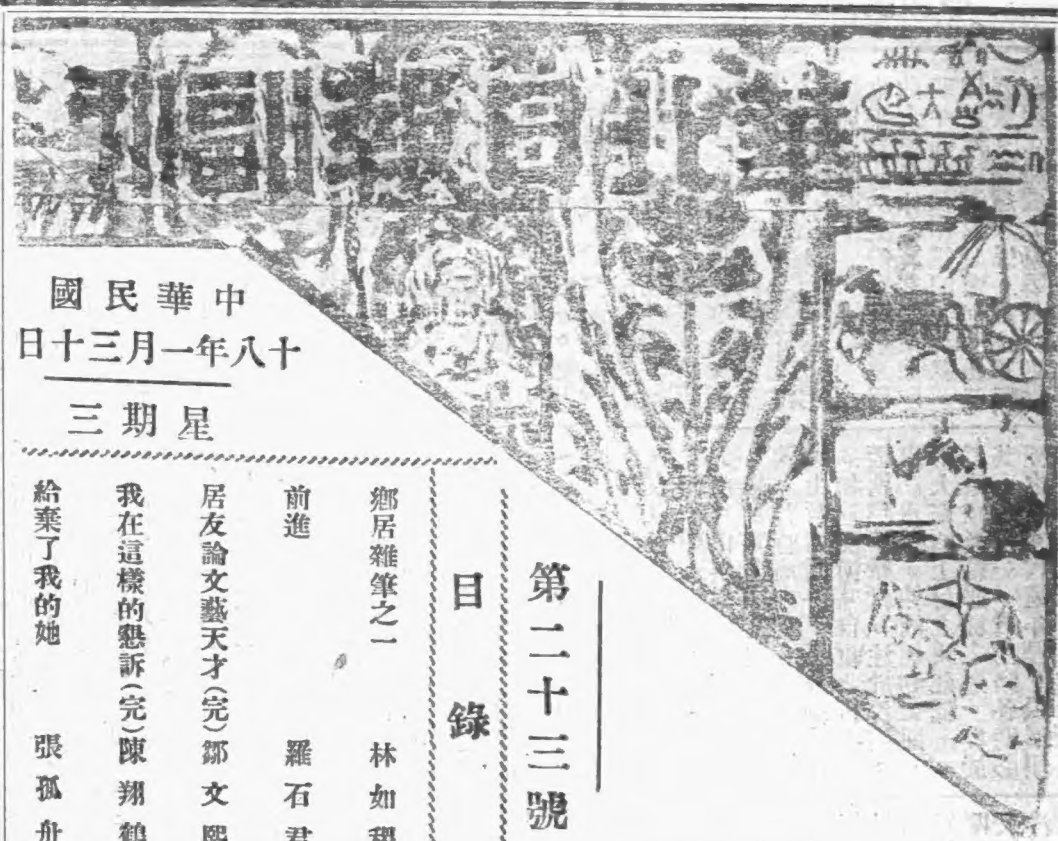 中華民國
十八年一月三十日
星期三
第二十三號
目錄
鄉居雜筆之一 林如稷
前進 羅石君
居友論文藝天才(完) 鄒文熙
我在這樣的懇訴(完) 陳翔鶴
給棄了我的她 張孤舟